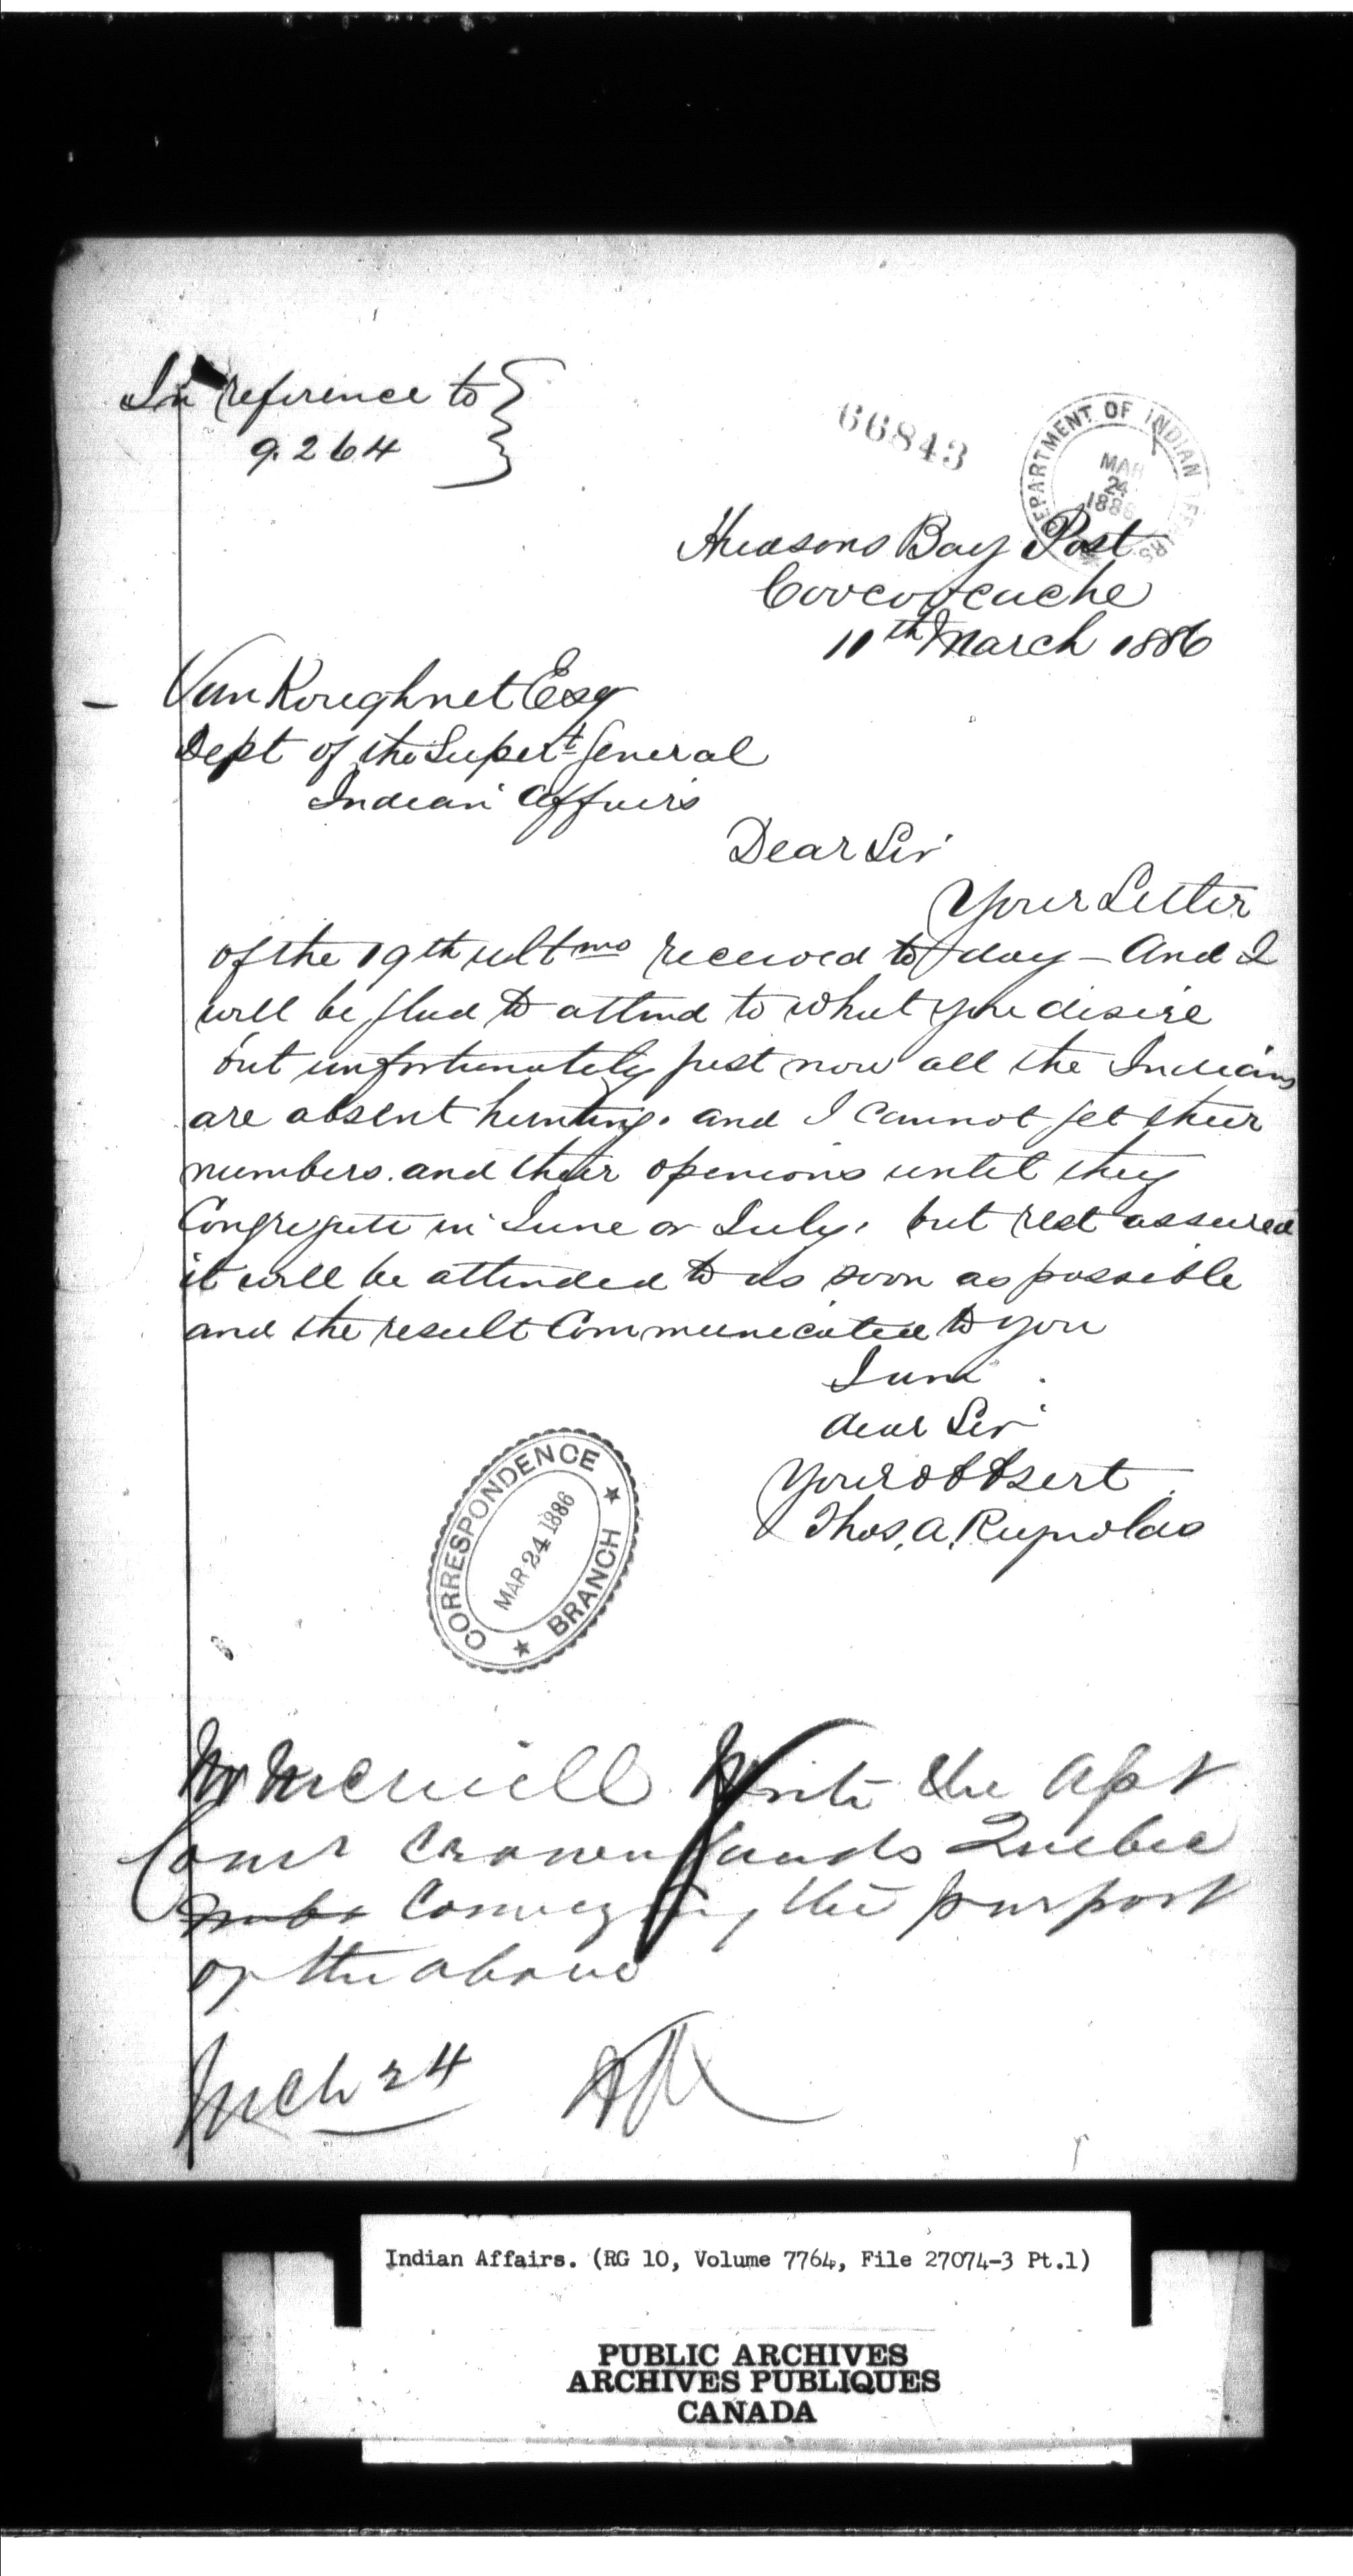 In reference to
9.264
66843
DEPARTMENT OF INDIAN AFFAIRS
MAR
24
1886
Hudsons Bay Post
Coocoocache
11th March 1886
VanKoughnet Esq
Dept of the Supert General
Indian Affairs
Dear Sir
Your Letter
of the 19th ultmo received to day - And I
will be glad to attend to what you desire
but unfortunately just now all the Indians
are absent hunting. and I cannot get their
numbers. and their opinions until they
Congregate in June or July. but rest assured
it will be attended to as soon as possible
and the result Communicated to you
I am
dear Sir
Your obt sert
Thos. A. Reynolds
CORRESPONDENCE
MAR 24 1886
BRANCH
Mr McNeill Write the Asst
Comr Crown Lands Quebec
conveying the purport
of the above
Mch 24
Indian Affairs. (RG 10, Volume 7764, File 27074-3 Pt.1)
PUBLIC ARCHIVES
ARCHIVES PUBLIQUES
CANADA